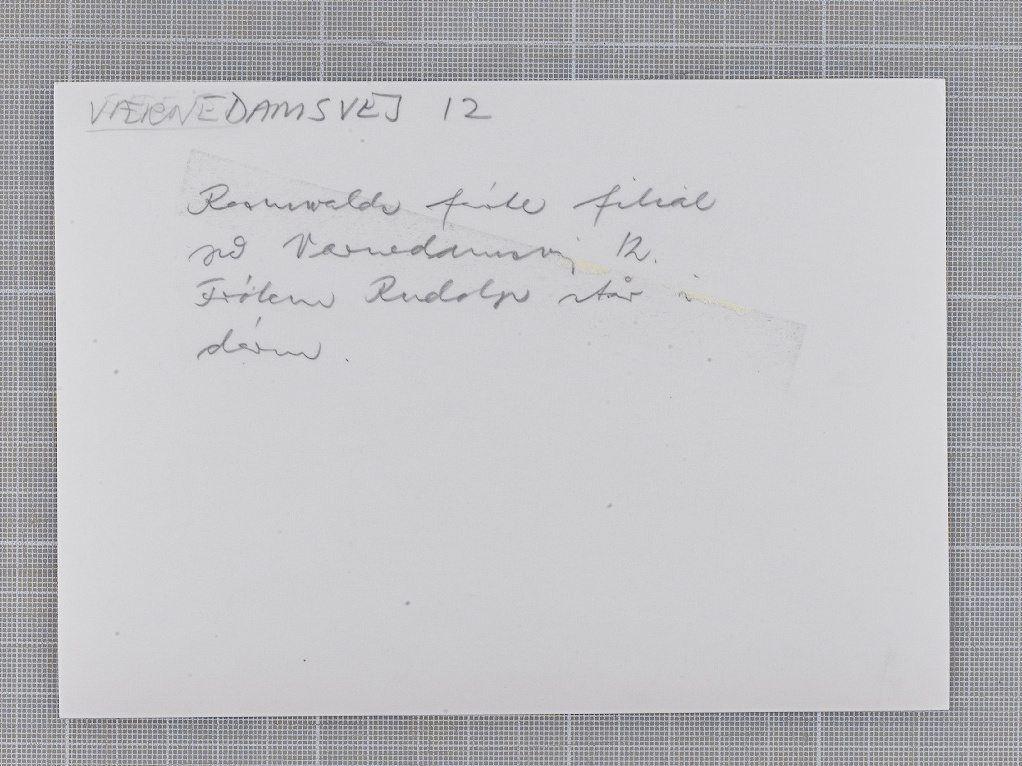 VÆRNEDAMSVEJ 12
Rosenwalds første filial
på Værnedamsvej 12.
Frøken Rudolph står i
døren.